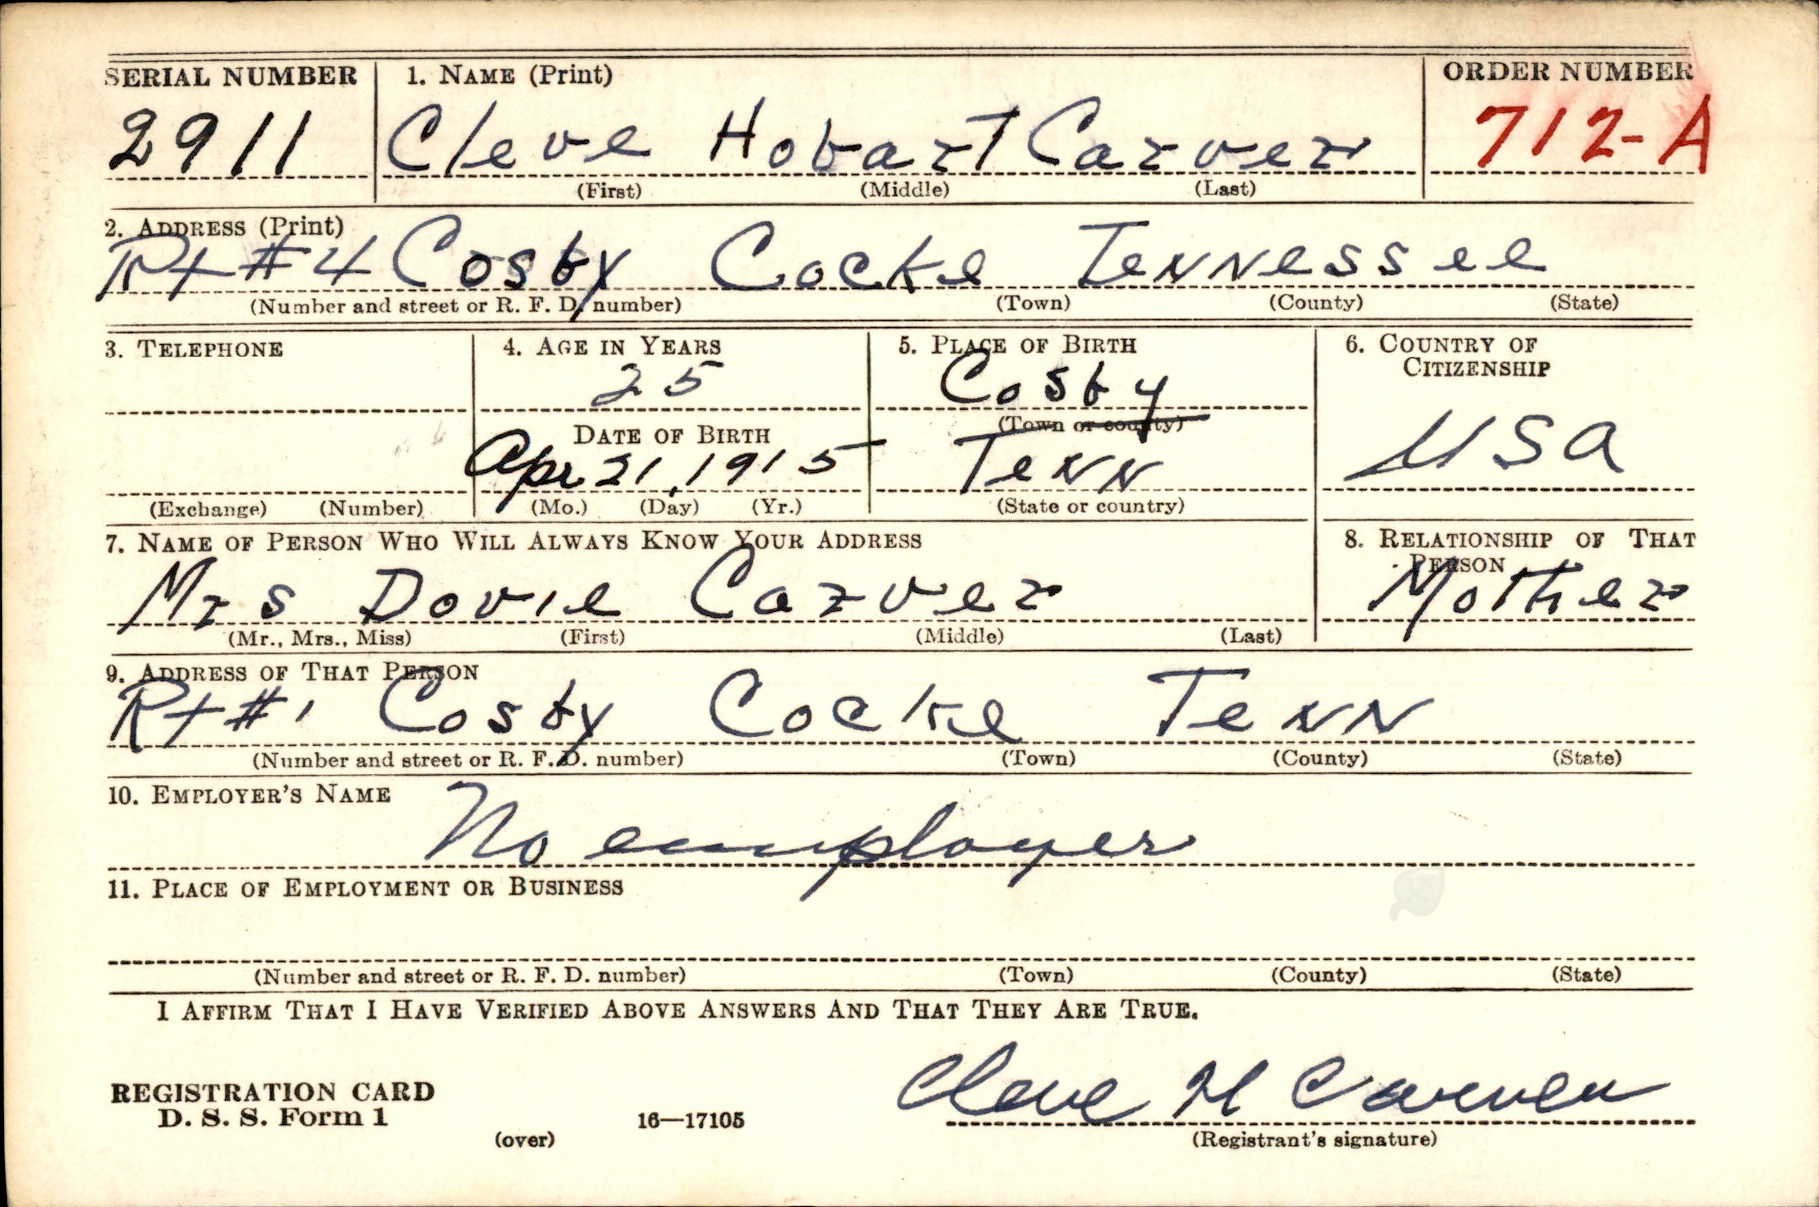 SERIAL NUMBER 1. NAME (Print) ORDER NUMBER
2911 Cleve Hobart Carver 712-A
(First) (Middle) (Last)
2. ADDRESS (Print)
Rt #4 Cosby Cocke Tennessee
(Number and street or R. F. D. number) (Town) (County) (State)
3. TELEPHONE 4. AGE IN YEARS 5. PLACE OF BIRTH 6. COUNTRY OF
CITIZENSHIP
25 Cosby
(Town or county)
DATE OF BIRTH
Apr 21, 1915 Tenn USA
(Exchange) (Number) (Mo.) (Day) (Yr.) (State or country)
7. NAME OF PERSON WHO WILL ALWAYS KNOW YOUR ADDRESS 8. RELATIONSHIP OF THAT
PERSON
Mrs Dovie Carver Mother
(Mr., Mrs., Miss) (First) (Middle) (Last)
9. ADDRESS OF THAT PERSON
Rt #1 Cosby Cocke Tenn
(Number and street or R. F. D. number) (Town) (County) (State)
10. EMPLOYER'S NAME
No employer
11. PLACE OF EMPLOYMENT OR BUSINESS
(Number and street or R. F. D. number) (Town) (County) (State)
I AFFIRM THAT I HAVE VERIFIED ABOVE ANSWERS AND THAT THEY ARE TRUE.
REGISTRATION CARD
D. S. S. Form 1 16—17105 Cleve H Carver
(over) (Registrant's signature)